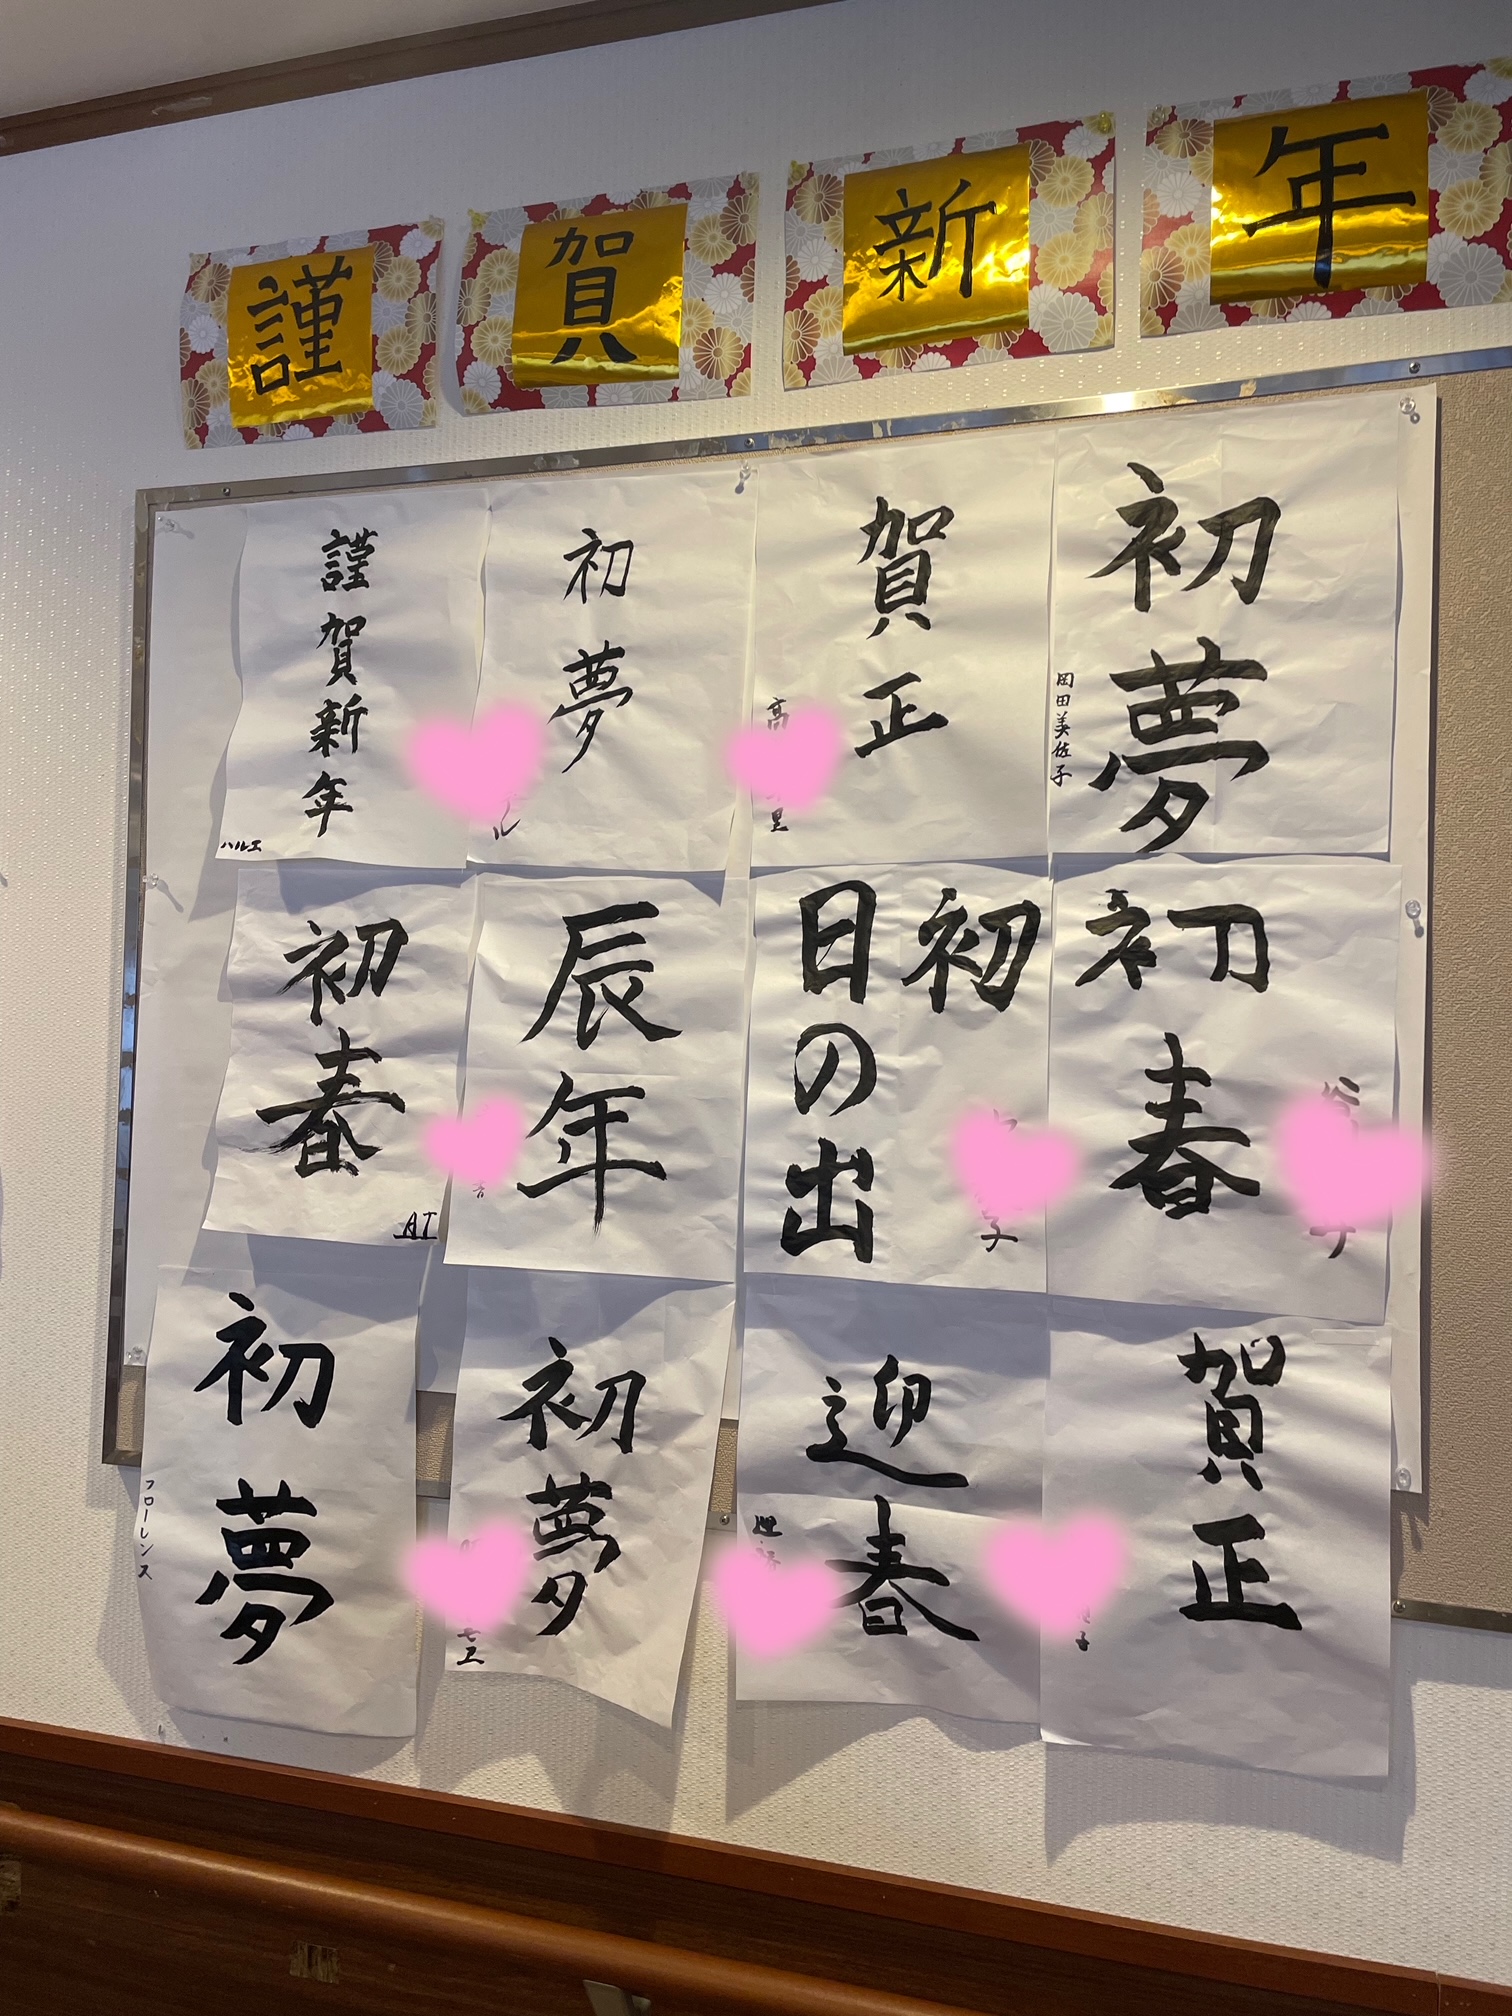 謹賀新年
謹賀新年
ハルエ
初夢
ル
賀正
高
里
初夢
岡田美佐子
初春
AI
辰年
初
日の出
子
初春
子
初夢
フローレンス
初夢
モエ
迎春
賀正
子